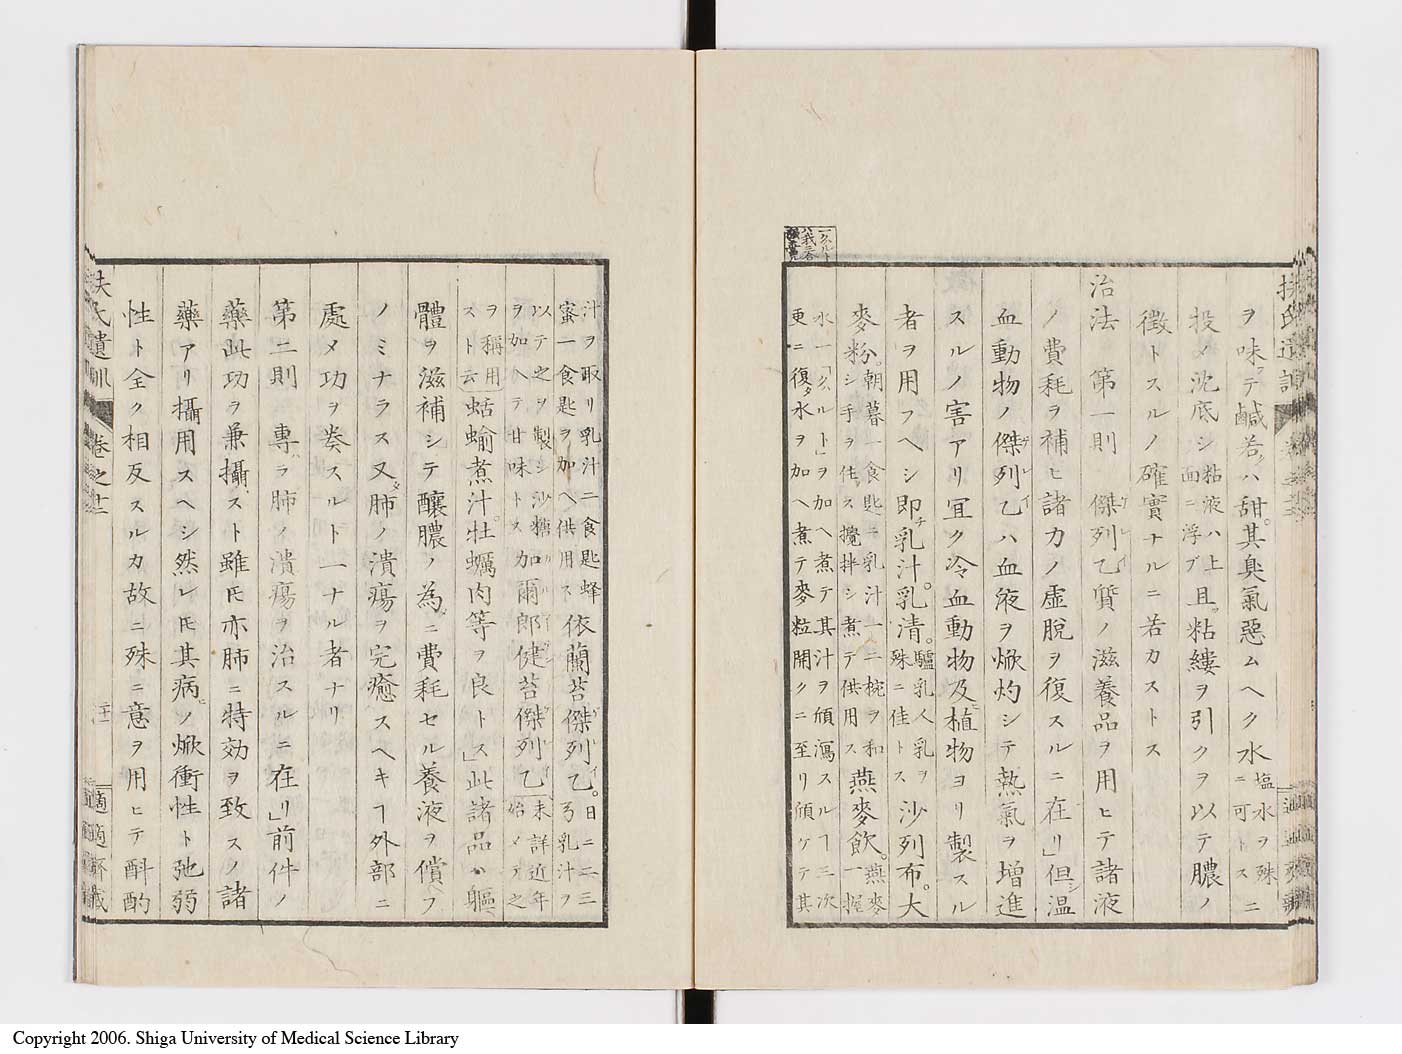 ヲ味テ鹹若ハ甜。其臭氣惡ムヘク水塩水ヲ殊ニニ可トス
投メ沈底シ粘液ハ上面ニ浮ブ且粘縷ヲ引クヲ以テ膿ノ
徴トスルノ確實ナルニ若カストス
治法 第一則 傑列乙質ノ滋養品ヲ用ヒテ諸液
ノ費耗ヲ補ヒ諸力ノ虚脱ヲ復スルニ在リ」但温
血動物ノ傑列乙ハ血液ヲ焮灼シテ熱氣ヲ増進
スルノ害アリ冝ク冷血動物及植物ヨリ製スル
者ヲ用フヘシ即乳汁。乳清。驢乳人乳ヲ殊ニ佳トス沙列布。大
麥粉。朝暮一食匙ニ乳汁一二椀ヲ和シ手ヲ住ス攪拌シ煮テ供用ス燕麥飲。燕麥一握
水一「クルト」ヲ加ヘ煮テ其汁ヲ傾瀉スルヿ三次
更ニ復タ水ヲ加ヘ煮テ麥粒開クニ至リ傾ケテ其
扶氏遺訓
汁ヲ取リ乳汁二食匙蜂
蜜一食匙ヲ加ヘ供用ス依蘭苔傑列乙。日ニ二三
以テ之ヲ製シ沙糖
ヲ加ヘテ甘味トス加爾郎健苔傑列乙未詳近年始メテ之
ヲ稱用スト云蛞蝓煮汁。牡蠣肉等ヲ良トス」此諸品ハ軀
體ヲ滋補シテ釀膿ノ為ニ費耗セル養液ヲ償フ
ノミナラス又肺ノ潰瘍ヲ完癒スヘキヿ外部ニ
處メ功ヲ奏スルト一ナル者ナリ
第二則 專ラ肺ノ潰瘍ヲ治スルニ在リ」前件ノ
藥此功ヲ兼攝スト雖𪜈亦肺ニ特効ヲ致スノ諸
藥アリ攝用スヘシ然レ𪜈其病ノ焮衝性ト弛弱
性ト全ク相反スルカ故ニ殊ニ意ヲ用ヒテ斟酌
扶氏遺訓 卷之十二 適適齋藏
Copyright 2006. Shiga University of Medical Science Library